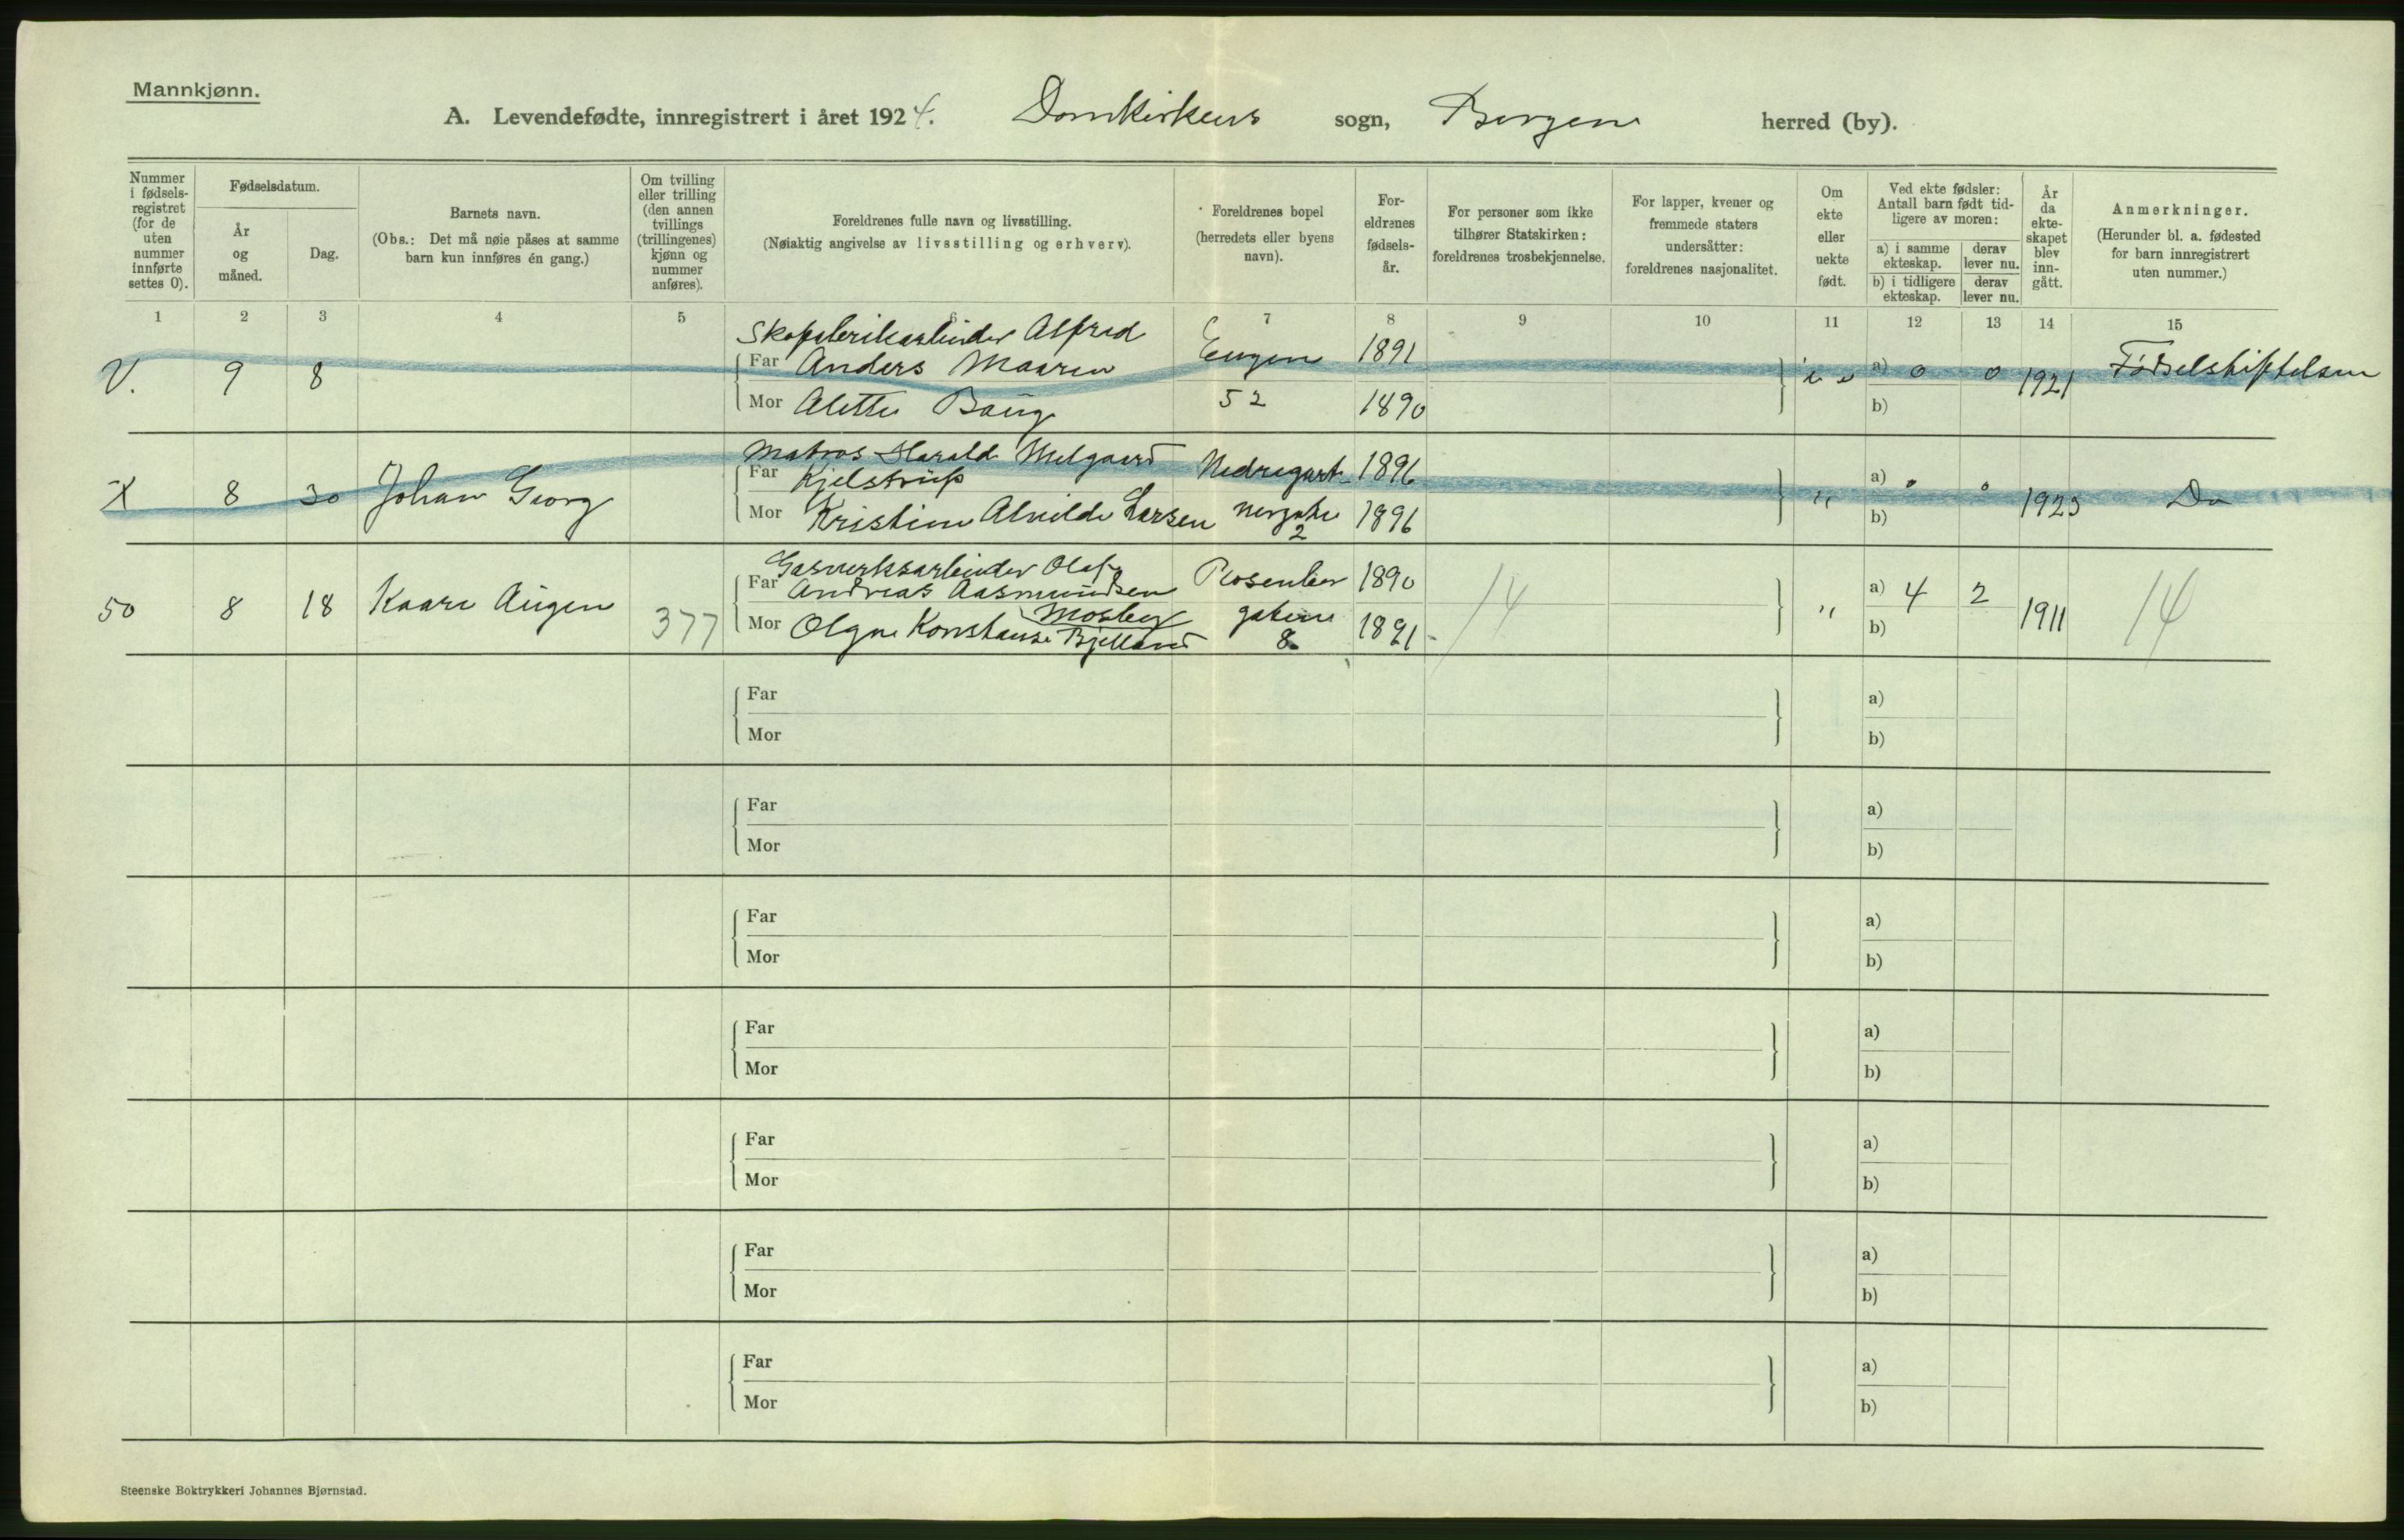 Mannkjønn.
A. Levendefødte, innregistrert i året 1924. Domkirkens sogn, Bergen herred (by).
Nummer i fødsels-registret (for de uten nummer innførte settes 0).
Fødselsdatum.
År og måned.
Dag.
Barnets navn.
(Obs.: Det må nøie påses at samme barn kun innføres én gang.)
Om tvilling eller trilling (den annen tvillings (trillingenes) kjønn og nummer anføres).
Foreldrenes fulle navn og livsstilling.
(Nøiaktig angivelse av livsstilling og erhverv).
Foreldrenes bopel (herredets eller byens navn).
For-eldrenes fødsels-år.
For personer som ikke tilhører Statskirken: foreldrenes trosbekjennelse.
For lapper, kvener og fremmede staters undersåtter: foreldrenes nasjonalitet.
Om ekte eller uekte født.
Ved ekte fødsler: Antall barn født tid-ligere av moren:
a) i samme ekteskap. derav lever nu.
b) i tidligere ekteskap. derav lever nu.
År da ekte-skapet blev inn-gått.
Anmerkninger.
(Herunder bl. a. fødested for barn innregistrert uten nummer.)
1 2 3 4 5 6 7 8 9 10 11 12 13 14 15
Skofabrikarbeider Alfred
V. 9 8 Far Anders Maaren Engen 1891 a) 0 0 1921 Fødselstiftelsen
Mor Alette Bauge 52 1890 b)
Matros Harald Melgaard
X 8 30 Johan Georg Far Kjelstrup Nedregart 1896 " a) 0 0 1923 Do
Mor Kristine Alvilde Larsen nergate 2 1896 b)
Gasverksarbeider Olaf
50 8 18 Kaare Eugen 377 Far Andreas Aasmundsen Rosenber 1890 14 " a) 4 2 1911 14
Mosberg
Mor Olga Konstanse Bjelland gaten 8 1891 b)
Far a)
Mor b)
Far a)
Mor b)
Far a)
Mor b)
Far a)
Mor b)
Far a)
Mor b)
Far a)
Mor b)
Far a)
Mor b)
Steenske Boktrykkeri Johannes Bjørnstad.